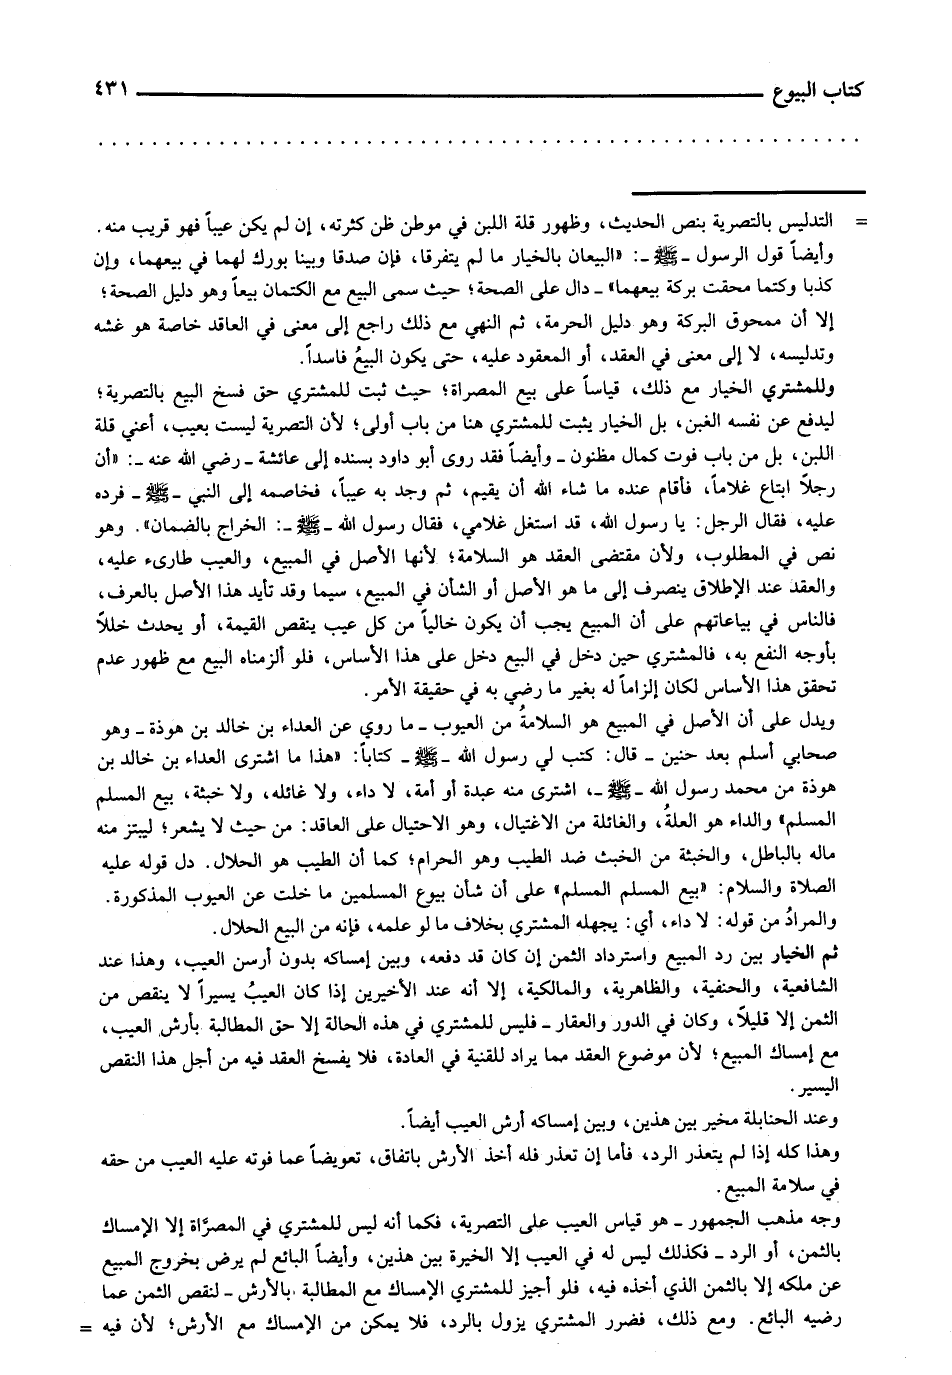 كتاب البيوع ٤٣١
= التدليس بالتصرية بنص الحديث، وظهور قلة اللبن في موطن ظن كثرته، إن لم يكن عيباً فهو قريب منه.
وأيضاً قول الرسول ـ ﷺ ـ: «البيعان بالخيار ما لم يتفرقا، فإن صدقا وبينا بورك لهما في بيعهما، وإن
كذبا وكتما محقت بركة بيعهما» ـ دال على الصحة؛ حيث سمى البيع مع الكتمان بيعاً وهو دليل الصحة؛
إلا أن ممحوق البركة وهو دليل الحرمة، ثم النهي مع ذلك راجع إلى معنى في العاقد خاصة هو غشه
وتدليسه، لا إلى معنى في العقد، أو المعقود عليه، حتى يكون البيعُ فاسداً.
وللمشتري الخيار مع ذلك، قياساً على بيع المصراة؛ حيث ثبت للمشتري حق فسخ البيع بالتصرية؛
ليدفع عن نفسه الغبن، بل الخيار يثبت للمشتري هنا من باب أولى؛ لأن التصرية ليست بعيب، أعني قلة
اللبن، بل من باب فوت كمال مظنون ـ وأيضاً فقد روى أبو داود بسنده إلى عائشة ـ رضي الله عنه ـ: «أن
رجلاً ابتاع غلاماً، فأقام عنده ما شاء الله أن يقيم، ثم وجد به عيباً، فخاصمه إلى النبي ـ ﷺ ـ فرده
عليه، فقال الرجل: يا رسول الله، قد استغل غلامي، فقال رسول الله ـ ﷺ ـ: الخراج بالضمان». وهو
نص في المطلوب، ولأن مقتضى العقد هو السلامة؛ لأنها الأصل في المبيع، والعيب طارىء عليه،
والعقد عند الإطلاق ينصرف إلى ما هو الأصل أو الشأن في المبيع، سيما وقد تأيد هذا الأصل بالعرف،
فالناس في بياعاتهم على أن المبيع يجب أن يكون خالياً من كل عيب ينقص القيمة، أو يحدث خللاً
بأوجه النفع به، فالمشتري حين دخل في البيع دخل على هذا الأساس، فلو ألزمناه البيع مع ظهور عدم
تحقق هذا الأساس لكان إلزاماً له بغير ما رضي به في حقيقة الأمر.
ويدل على أن الأصل في المبيع هو السلامةُ من العيوب ـ ما روي عن العداء بن خالد بن هوذة ـ وهو
صحابي أسلم بعد حنين ـ قال: كتب لي رسول الله ـ ﷺ ـ كتاباً: «هذا ما اشترى العداء بن خالد بن
هوذة من محمد رسول الله ـ ﷺ ـ، اشترى منه عبدة أو أمة، لا داء، ولا غائله، ولا خبثة، بيع المسلم
المسلم» والداء هو العلةُ، والغائلة من الاغتيال، وهو الاحتيال على العاقد: من حيث لا يشعر؛ ليبتز منه
ماله بالباطل، والخبثة من الخبث ضد الطيب وهو الحرام؛ كما أن الطيب هو الحلال. دل قوله عليه
الصلاة والسلام: «بيع المسلم المسلم» على أن شأن بيوع المسلمين ما خلت عن العيوب المذكورة.
والمرادُ من قوله: لا داء، أي: يجهله المشتري بخلاف ما لو علمه، فإنه من البيع الحلال.
ثم الخيار بين رد المبيع واسترداد الثمن إن كان قد دفعه، وبين إمساكه بدون أرسن العيب، وهذا عند
الشافعية، والحنفية، والظاهرية، والمالكية، إلا أنه عند الأخيرين إذا كان العيبُ يسيراً لا ينقص من
الثمن إلا قليلاً، وكان في الدور والعقار ـ فليس للمشتري في هذه الحالة إلا حق المطالبة بأرش العيب،
مع إمساك المبيع؛ لأن موضوع العقد مما يراد للقنية في العادة، فلا يفسخ العقد فيه من أجل هذا النقص
اليسير.
وعند الحنابلة مخير بين هذين، وبين إمساكه أرش العيب أيضاً.
وهذا كله إذا لم يتعذر الرد، فأما إن تعذر فله أخذ الأرش باتفاق، تعويضاً عما فوته عليه العيب من حقه
في سلامة المبيع.
وجه مذهب الجمهور ـ هو قياس العيب على التصرية، فكما أنه ليس للمشتري في المصرَّاة إلا الإمساك
بالثمن، أو الرد ـ فكذلك ليس له في العيب إلا الخيرة بين هذين، وأيضاً البائع لم يرض بخروج المبيع
عن ملكه إلا بالثمن الذي أخذه فيه، فلو أجيز للمشتري الإمساك مع المطالبة بالأرش ـ لنقص الثمن عما
رضيه البائع. ومع ذلك، فضرر المشتري يزول بالرد، فلا يمكن من الإمساك مع الأرش؛ لأن فيه =